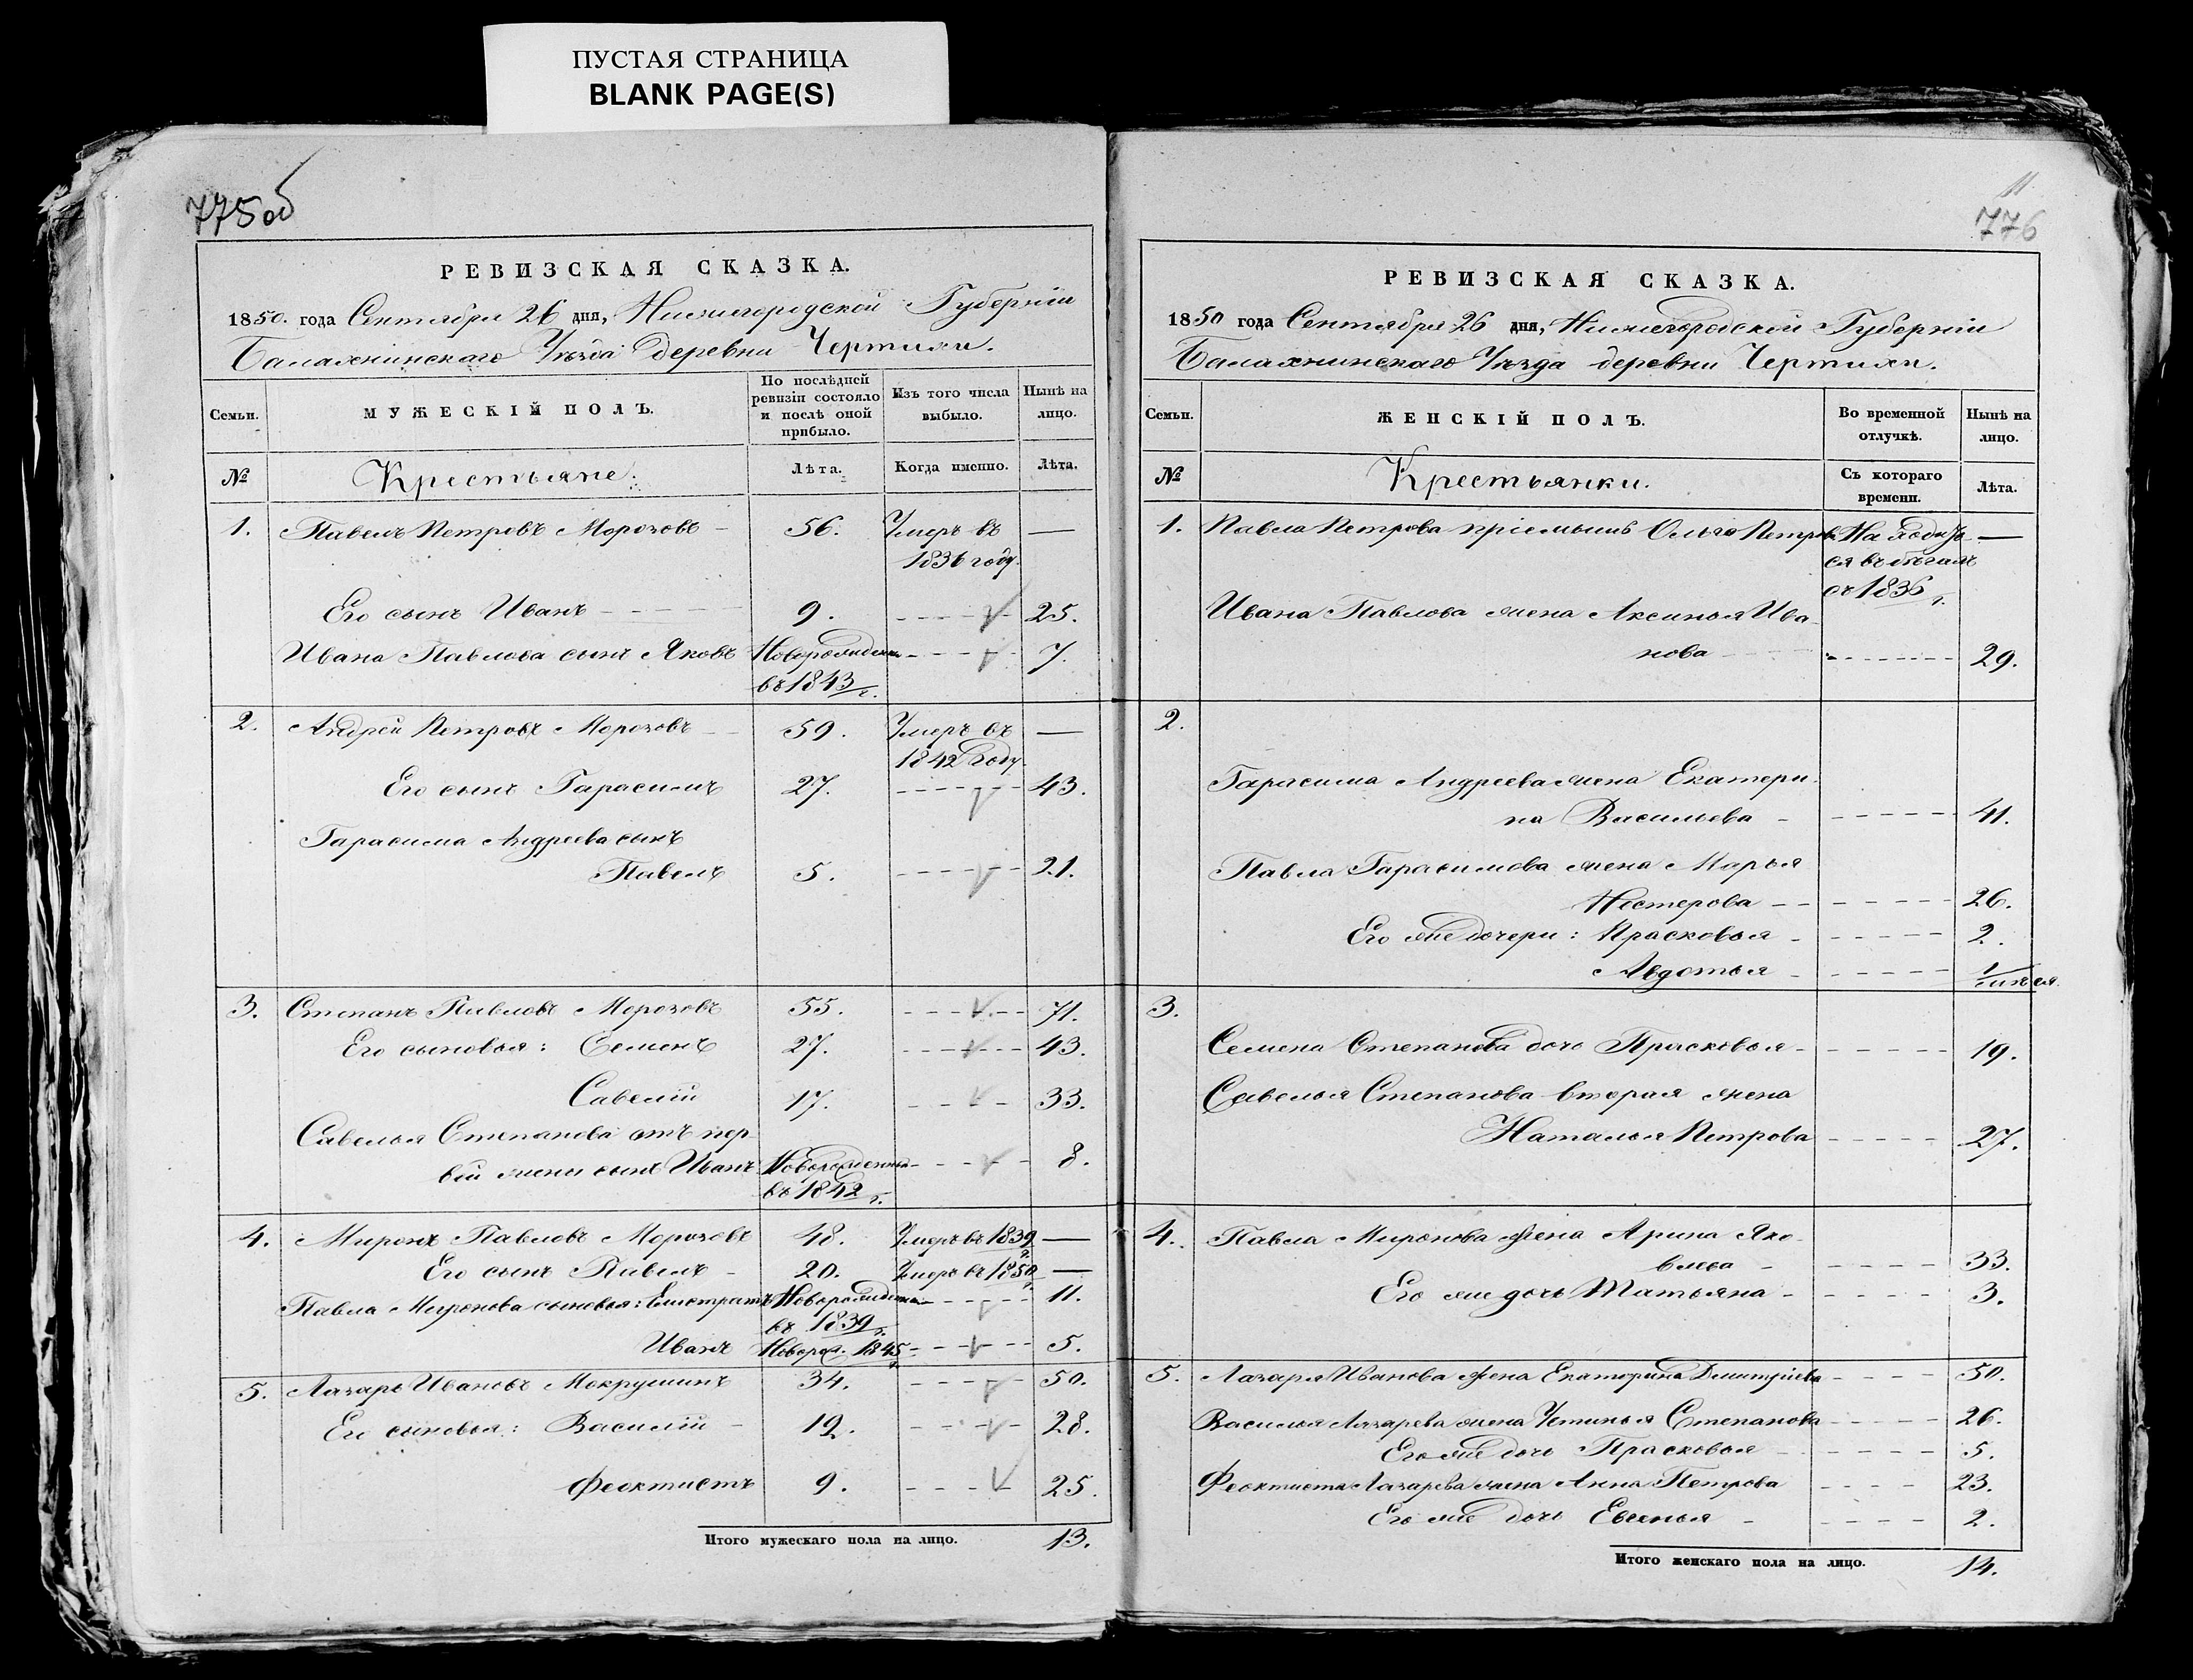 ПУСТАЯ СТРАНИЦА
BLANK PAGE(S)
775об
РЕВИЗСКАЯ СКАЗКА.
1850. года Сентября 26 дня, Нижегородской Губерніи
Балахнинскаго Уѣзда деревни Чертихи.
Семьи.
МУЖЕСКІЙ ПОЛЪ.
По послѣдней
ревизіи состояло
и послѣ оной
прибыло.
Изъ того числа
выбыло.
Нынѣ на
лицо.
№ Крестьяне: Лѣта. Когда именно. Лѣта.
1. Павелъ Петровъ Морозовъ 56. Умеръ въ —
1836 году.
Его сынъ Иванъ 9. 25.
Ивана Павлова сынъ Яковъ Новорожденъ 7.
въ 1843 г.
2. Андрей Петровъ Морозовъ 59. Умеръ въ —
1842 году.
Его сынъ Гарасимъ 27. 43.
Гарасима Андреева сынъ
Павелъ 5. 21.
3. Степанъ Павловъ Морозовъ 55. 71.
Его сыновья: Семенъ 27. 43.
Савелій 17. 33.
Савелья Степанова отъ пер-
вой жены сынъ Иванъ Новорожденный 8.
въ 1842 г.
4. Миронъ Павловъ Морозовъ 48. Умеръ въ 1839 г. —
Его сынъ Павелъ 20. Умеръ въ 1850 г. —
Павла Миронова сыновья: Елистратъ Новорожденъ 11.
въ 1839 г.
Иванъ Новорож. 1845 г. 5.
5. Лазарь Ивановъ Мокрушинъ 34. 50.
Его сыновья: Василій 12. 28.
Феоктистъ 9. 25.
Итого мужескаго пола на лицо. 13.
11
776
РЕВИЗСКАЯ СКАЗКА.
1850 года Сентября 26 дня, Нижегородской Губерніи
Балахнинскаго Уѣзда деревни Чертихи.
Семьи.
ЖЕНСКІЙ ПОЛЪ.
Во временной
отлучкѣ.
Нынѣ на
лицо.
№ Крестьянки. Съ котораго
времени.
Лѣта.
1. Павла Петрова пріемышъ Ольга Петрова Находит —
ся въ бѣгахъ
съ 1836 г.
Ивана Павлова жена Аксинья Ива-
нова 29.
2.
Гарасима Андреева жена Екатери-
на Васильева 41.
Павла Гарасимова жена Марья
Нестерова 26.
Его же дочери: Прасковья 2.
Авдотья 1/2
3.
Семена Степанова дочь Прасковья 19.
Савелья Степанова вторая жена
Наталья Петрова 27.
4. Павла Миронова жена Арина Яко-
влева 33.
Его же дочь Татьяна 3.
5. Лазаря Иванова жена Екатерина Дмитріева 50.
Василья Лазарева жена Устинья Степанова 26.
Его же дочь Прасковья 5.
Феоктиста Лазарева жена Анна Петрова 23.
Его же дочь Евгенья 2.
Итого женскаго пола на лицо. 14.